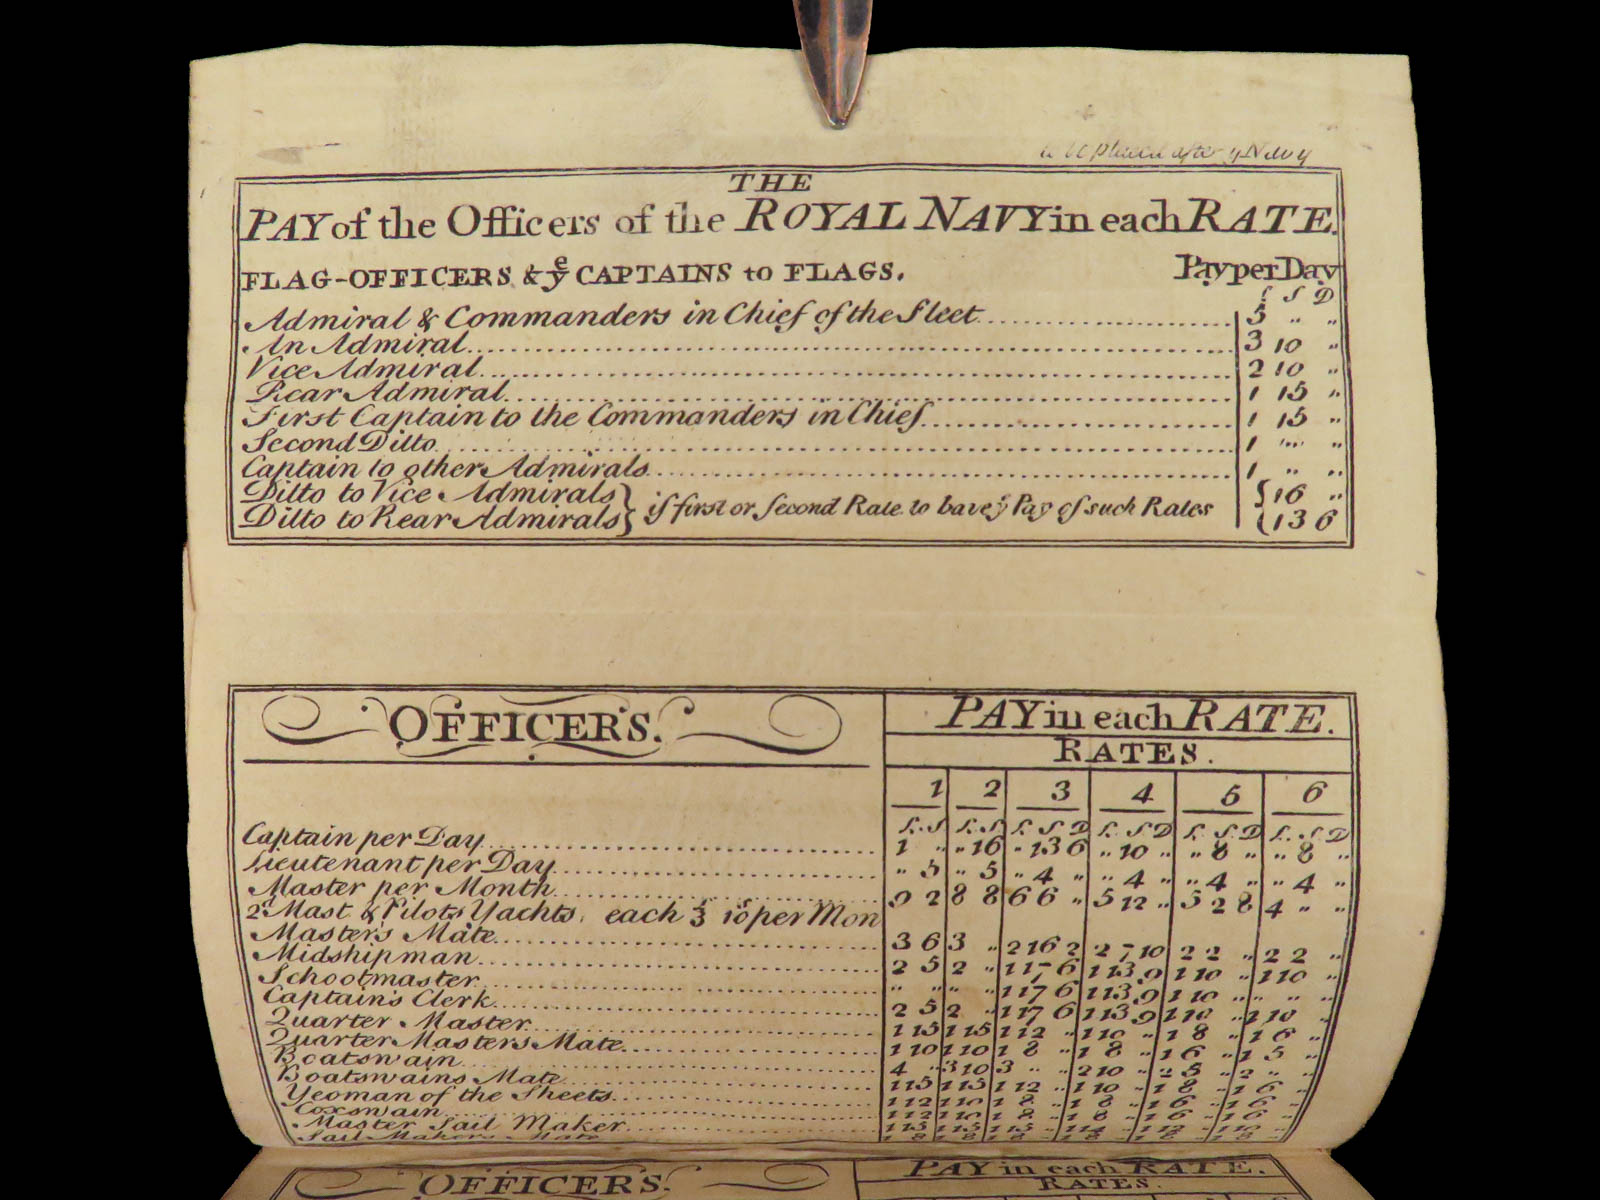 to be placed after yͤ Navy
THE
PAY of the Officers of the ROYAL NAVY in each RATE.
FLAG-OFFICERS & yͤ CAPTAINS to FLAGS. Pay per Day
£ S D
Admiral & Commanders in Chief of the Fleet 5 " "
An Admiral 3 10 "
Vice Admiral 2 10 "
Rear Admiral 1 15 "
First Captain to the Commanders in Chief 1 15 "
Second Ditto 1 " "
Captain to other Admirals 1 " "
Ditto to Vice Admirals } if first or second Rate to have yͤ Pay of such Rates { 16 "
Ditto to Rear Admirals } { 13 6
OFFICERS. PAY in each RATE.
RATES.
1 2 3 4 5 6
£. S £. S £. S D £. S D £. S D £. S D
Captain per Day 1 " " 16 " 13 6 " 10 " " 8 " " 8 "
Lieutenant per Day " 5 " 5 " 4 " " 4 " " 4 " " 4 "
Master per Month 9 2 8 8 6 6 " 5 12 " 5 2 8 4 " "
2ᵈ Mast. & Pilots Yachts, each £3 10ˢ per Mon
Master's Mate 3 6 3 " 2 16 2 2 7 10 2 2 " 2 2 "
Midshipman 2 5 2 " 1 17 6 1 13 9 1 10 " 1 10 "
Schoolmaster " " " " 1 17 6 1 13 9 1 10 " " " "
Captain's Clerk 2 5 2 " 1 17 6 1 13 9 1 10 " 1 10 "
Quarter Master 1 15 1 15 1 12 " 1 10 " 1 8 " 1 6 "
Quarter Masters Mate 1 10 1 10 1 8 " 1 8 " 1 6 " 1 5 "
Boatswain 4 " 3 10 3 " " 2 10 " 2 5 " 2 " "
Boatswains Mate 1 15 1 15 1 12 " 1 10 " 1 8 " 1 6 "
Yeoman of the Sheets 1 12 1 10 1 8 " 1 8 " 1 6 " 1 6 "
Coxswain 1 12 1 10 1 8 " 1 8 " 1 6 " 1 6 "
Master Sail Maker 1 15 1 15 1 15 " 1 14 " 1 12 " 1 10 "
Sail Makers Mate 1 8 1 8 1 8 " 1 8 " 1 8 " 1 8 "
OFFICERS. PAY in each RATE.
RATES.